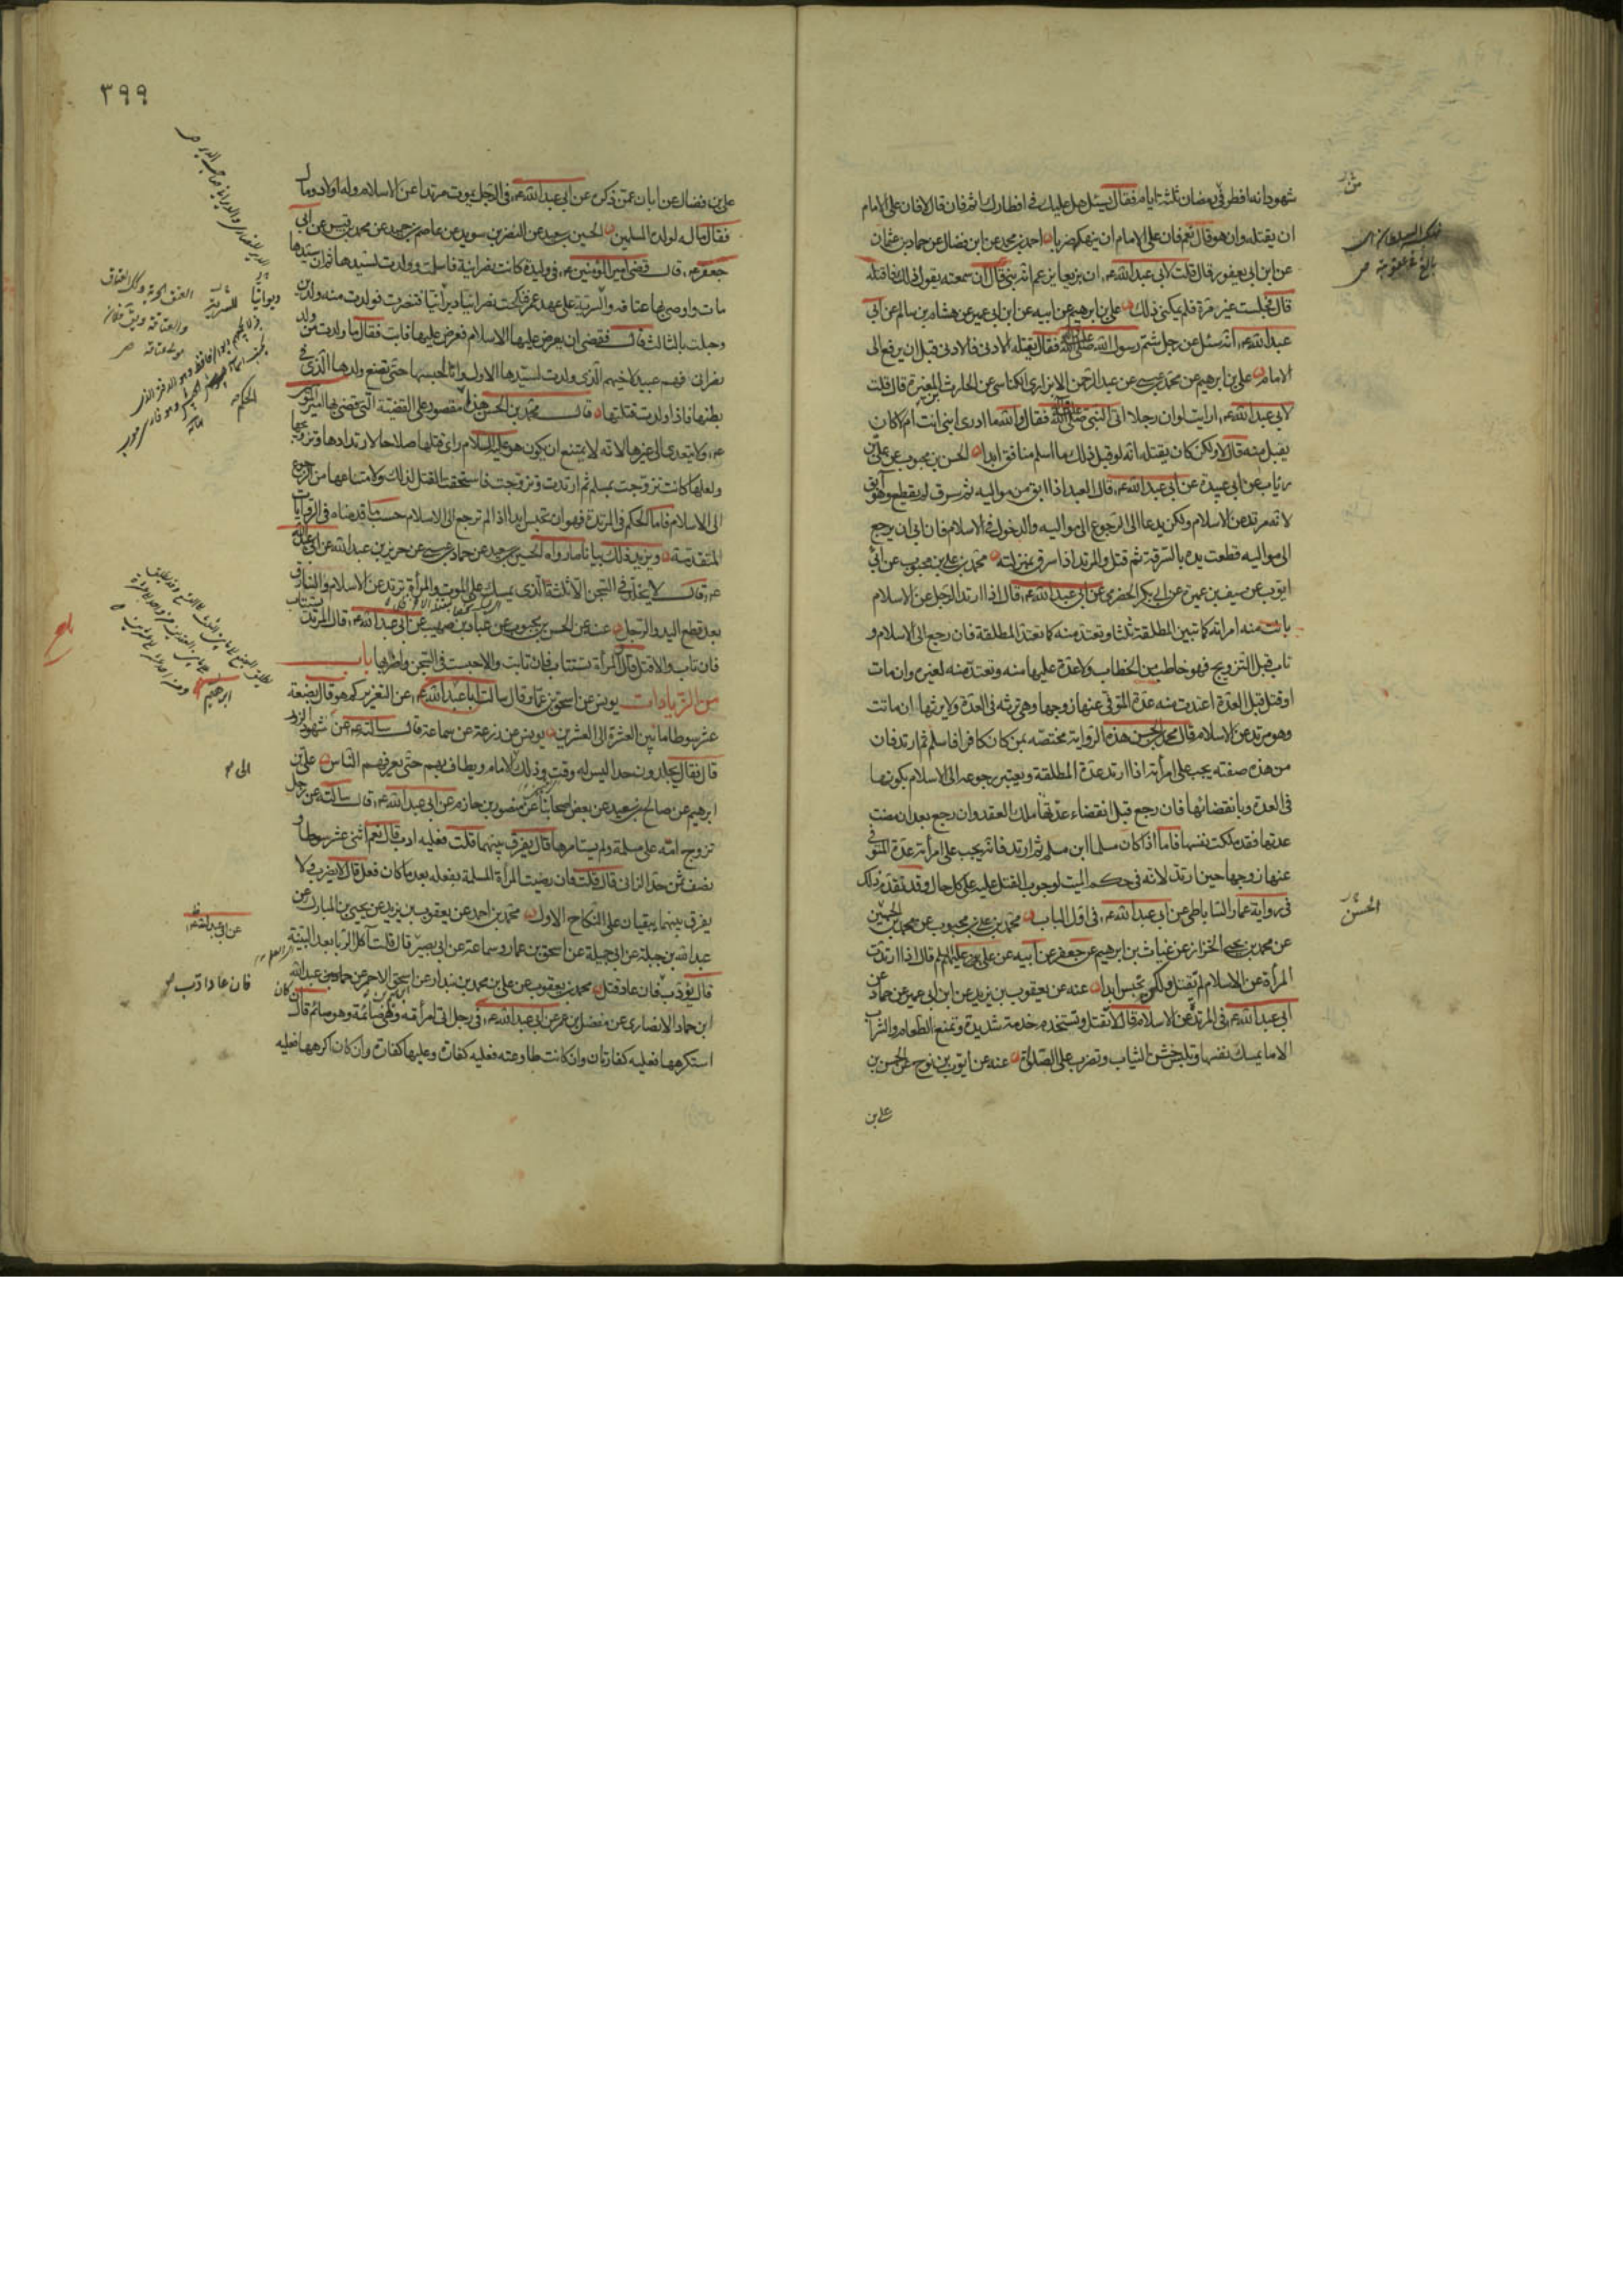 شهود انه افطر في رمضان ثلثة ايام فقال يسئل هل عليك في افطارك اثم فان قال لا فان على الامام
ان يقتله وان هو قال نعم فان على الامام ان ينهكه ضربا احمد بن محمد عن ابن فضال عن حماد بن عثمان
عن ابن ابي يعفور قال قلت لابي عبد الله ع ان بزيعا يزعم انه نبي قال ان سمعته يقول ذلك فاقتله
قال فجلست غير مرة فلم يمكني ذلك علي بن ابرهيم عن ابيه عن ابن ابي عمير عن هشام بن سالم عن ابي
عبد الله ع انه سئل عن رجل شتم رسول الله صلى الله عليه وآله فقال يقتله الادنى فالادنى قبل ان يرفع الى
الامام علي بن ابرهيم عن محمد بن عيسى عن عبد الرحمن الابزاري الكناسي عن الحارث بن المغيرة قال قلت
لابي عبد الله ع ارايت لو ان رجلا اتى النبي صلى الله عليه وآله فقال والله ما ادري انبي انت ام لا كان
يقبل منه قال لا ولكن كان يقتله انه لو قبل ذلك ما اسلم منافق ابدا الحسن بن محبوب عن علي بن
رئاب عن ابي عبيدة عن ابي عبد الله ع قال العبد اذا ابق من مواليه ثم سرق لم يقطع وهو آبق
لانه مرتد عن الاسلام ولكن يدعا الى الرجوع الى مواليه والدخول في الاسلام فان ابى ان يرجع
الى مواليه قطعت يده بالسرقة ثم قتل والمرتد اذا سرق بمنزلته محمد بن علي بن محبوب عن ابي
ايوب عن سيف بن عميرة عن ابي بكر الحضرمي عن ابي عبد الله ع قال اذا ارتد الرجل عن الاسلام
بانت منه امراته كما تبين المطلقة ثلثا وتعتد منه كما تعتد المطلقة فان رجع الى الاسلام و
تاب قبل التزويج فهو خاطب من الخطاب ولا عدة عليها منه وتعتد منه لغيره وان مات
او قتل قبل العدة اعتدت منه عدة المتوفى عنها زوجها وهي ترثه في العدة ولا يرثها ان ماتت
وهو مرتد عن الاسلام قال محمد بن الحسن هذه الرواية مختصه بمن كان كافرا فاسلم ثم ارتد فان
من هذه صفته يجب على امراته اذا ارتد عدة المطلقة ويعتبر رجوعه الى الاسلام بكونها
في العدة وبانقضائها فان رجع قبل انقضاء عدتها ملك العقد وان رجع بعد ان مضت
عدتها فقد ملكت نفسها فاما اذا كان مسلما ابن مسلم ثم ارتد فانه يجب على امراته عدة المتوفى
عنها زوجها حين ارتد لانه في حكم الميت لوجوب القتل عليه على كل حال وقد تقدم ذلك
في رواية عمار الساباطي عن ابي عبد الله ع في اول الباب محمد بن علي بن محبوب عن محمد بن الحسين
عن محمد بن يحيى الخزاز عن غياث بن ابرهيم عن جعفر عن ابيه عن علي عليهم السلام قال اذا ارتدت
المرأة عن الاسلام لم تقتل ولكن تحبس ابدا عنه عن يعقوب بن يزيد عن ابن ابي عمير عن حماد عن
ابي عبد الله ع في المرتدة عن الاسلام قال لا تقتل وتستخدم خدمة شديدة وتمنع الطعام والشراب
الا ما يمسك نفسها وتلبس خشن الثياب وتضرب على الصلوة عنه عن ايوب بن نوح عن الحسن بن
علي بن
الحسن
٣٩٩
علي بن فضال عن ابان عمن ذكره عن ابي عبد الله ع في الرجل يموت مرتدا عن الاسلام وله اولاد ومال
فقال ماله لولده المسلمين الحسين بن سعيد عن النضر بن سويد عن عاصم بن حميد عن محمد بن قيس عن ابي
جعفر ع قال قضى امير المؤمنين ع في وليدة كانت نصرانية فاسلمت وولدت لسيدها ثم ان سيدها
مات واوصى بها عتاقة والسرية على عهد عمر فنكحت نصرانيا ديرانيا فتنصرت فولدت منه ولدين
وحبلت بالثالث قال فقضى ان يعرض عليها الاسلام فعرض عليها فابت فقال ما ولدت من ولد
نصراني فهم عبيد لاخيهم الذي ولدت لسيدها الاول وانا احبسها حتى تضع ولدها الذي في
بطنها فاذا ولدت قتلتها قال محمد بن الحسن هذا مقصور على القضية التي قضى بها امير المؤمنين
ع ولا يتعدى الى غيرها لانه لا يمتنع ان يكون هو عليه السلام راى قتلها صلاحا لارتدادها وتزويجها
ولعلها كانت تزوجت بمسلم ثم ارتدت وتزوجت فاستحقت القتل لذلك ولامتناعها من الرجوع
الى الاسلام فاما الحكم في المرتدة فهو ان تحبس ابدا اذا لم ترجع الى الاسلام حسب ما قدمناه في الروايات
المتقدمة ويزيد ذلك بيانا ما رواه الحسين بن سعيد عن حماد بن عيسى عن حريز بن عبد الله عن ابي عبد الله
ع قال لا يخلد في السجن الا ثلثة الذي يمسك على الموت والمرأة ترتد عن الاسلام والسارق
بعد قطع اليد والرجل عنه عن الحسن بن محبوب عن عباد بن صهيب عن ابي عبد الله ع قال المرتد يستتاب
فان تاب والا قتل قال والمرأة تستتاب فان تابت والا حبست في السجن واضر بها باب
من الزيادات يونس عن اسحق بن عمار قال سالت ابا عبد الله ع عن التعزير كم هو قال بضعة
عشر سوطا ما بين العشرة الى العشرين يونس عن زرعة عن سماعة قال سالته ع عن شهود الزور
قال فقال يجلدون حدا ليس له وقت وذلك للامام ويطاف بهم حتى يعرفهم الناس علي بن
ابرهيم عن صالح بن سعيد عن بعض اصحابنا عن منصور بن حازم عن ابي عبد الله ع قال سالته عن رجل
تزوج امة على مسلمة ولم يستامرها قال يفرق بينهما قلت فعليه ادب قال نعم اثنى عشر سوطا و
نصف ثمن حد الزاني قال قلت فان رضيت المرأة المسلمة بفعله بعد ما كان فعل قال لا يضرب ولا
يفرق بينهما يبقيان على النكاح الاول محمد بن احمد عن يعقوب بن يزيد عن يحيى بن المبارك عن
عبد الله بن جبلة عن ابي جميلة عن اسحق بن عمار وسماعة عن ابي بصير قال قلت آكل الربا بعد البينة
قال يؤدب فان عاد قتل محمد بن يعقوب عن علي بن محمد بن بندار عن اسحق الاحمر عن حماد بن عبد الله
ابن حماد الانصاري عن مفضل بن عمر عن ابي عبد الله ع في رجل اتى امرأته وهي صائمة وهو صائم قال ان كان
استكرهها فعليه كفارتان وان كانت طاوعته فعليه كفارة وعليها كفارة وان كان اكرهها فعليه
الى
فان عاد ادب